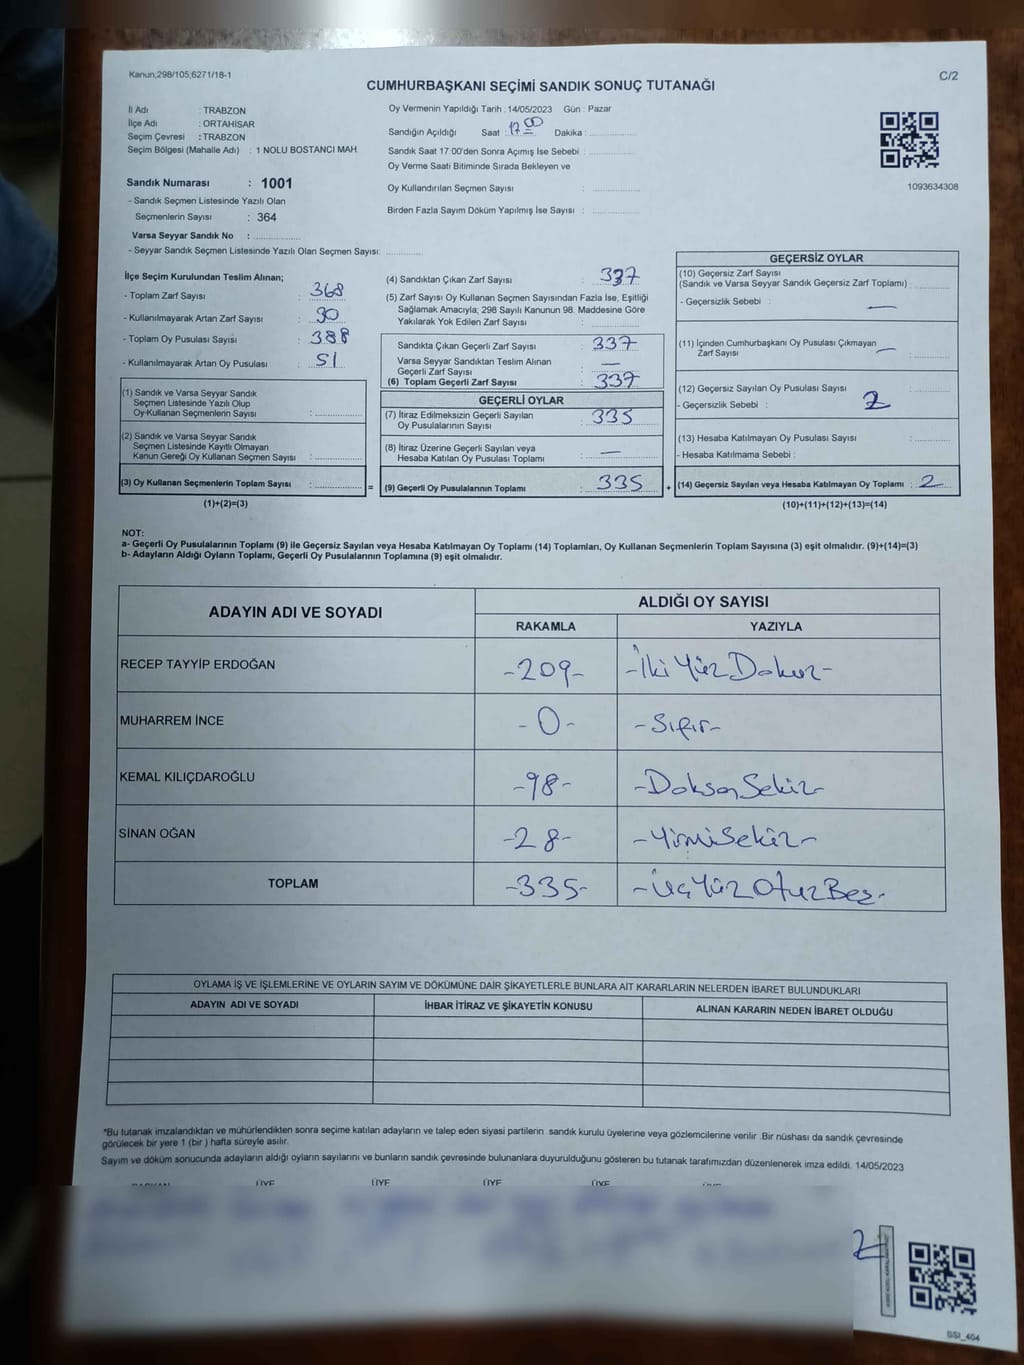 Kanun;298/105,6271/18-1
C/2
CUMHURBAŞKANI SEÇİMİ SANDIK SONUÇ TUTANAĞI
İl Adı : TRABZON
İlçe Adı : ORTAHİSAR
Seçim Çevresi : TRABZON
Seçim Bölgesi (Mahalle Adı) : 1 NOLU BOSTANCI MAH.
Sandık Numarası : 1001
- Sandık Seçmen Listesinde Yazılı Olan
Seçmenlerin Sayısı : 364
Varsa Seyyar Sandık No :
- Seyyar Sandık Seçmen Listesinde Yazılı Olan Seçmen Sayısı:
Oy Vermenin Yapıldığı Tarih : 14/05/2023 Gün : Pazar
Sandığın Açıldığı Saat : 17 00 Dakika :
Sandık Saat 17:00'den Sonra Açımış İse Sebebi :
Oy Verme Saati Bitiminde Sırada Bekleyen ve
Oy Kullandırılan Seçmen Sayısı :
Birden Fazla Sayım Döküm Yapılmış İse Sayısı :
1093634308
İlçe Seçim Kurulundan Teslim Alınan;
- Toplam Zarf Sayısı : 368
- Kullanılmayarak Artan Zarf Sayısı : 30
- Toplam Oy Pusulası Sayısı : 388
- Kullanılmayarak Artan Oy Pusulası : 51
(1) Sandık ve Varsa Seyyar Sandık
Seçmen Listesinde Yazılı Olup
Oy Kullanan Seçmenlerin Sayısı :
(2) Sandık ve Varsa Seyyar Sandık
Seçmen Listesinde Kayıtlı Olmayan
Kanun Gereği Oy Kullanan Seçmen Sayısı :
(3) Oy Kullanan Seçmenlerin Toplam Sayısı :
(1)+(2)=(3)
(4) Sandıktan Çıkan Zarf Sayısı : 337
(5) Zarf Sayısı Oy Kullanan Seçmen Sayısından Fazla İse, Eşitliği
Sağlamak Amacıyla; 298 Sayılı Kanunun 98. Maddesine Göre
Yakılarak Yok Edilen Zarf Sayısı :
Sandıkta Çıkan Geçerli Zarf Sayısı : 337
Varsa Seyyar Sandıktan Teslim Alınan
Geçerli Zarf Sayısı : —
(6) Toplam Geçerli Zarf Sayısı : 337
GEÇERLİ OYLAR
(7) İtiraz Edilmeksizin Geçerli Sayılan
Oy Pusulalarının Sayısı : 335
(8) İtiraz Üzerine Geçerli Sayılan veya
Hesaba Katılan Oy Pusulası Toplamı : —
= (9) Geçerli Oy Pusulalarının Toplamı : 335
GEÇERSİZ OYLAR
(10) Geçersiz Zarf Sayısı
(Sandık ve Varsa Seyyar Sandık Geçersiz Zarf Toplamı) :
- Geçersizlik Sebebi : —
(11) İçinden Cumhurbaşkanı Oy Pusulası Çıkmayan
Zarf Sayısı — :
(12) Geçersiz Sayılan Oy Pusulası Sayısı :
- Geçersizlik Sebebi : 2
(13) Hesaba Katılmayan Oy Pusulası Sayısı :
- Hesaba Katılmama Sebebi :
+ (14) Geçersiz Sayılan veya Hesaba Katılmayan Oy Toplamı : 2
(10)+(11)+(12)+(13)=(14)
NOT:
a- Geçerli Oy Pusulalarının Toplamı (9) ile Geçersiz Sayılan veya Hesaba Katılmayan Oy Toplamı (14) Toplamları, Oy Kullanan Seçmenlerin Toplam Sayısına (3) eşit olmalıdır. (9)+(14)=(3)
b- Adayların Aldığı Oyların Toplamı, Geçerli Oy Pusulalarının Toplamına (9) eşit olmalıdır.
ADAYIN ADI VE SOYADI
ALDIĞI OY SAYISI
RAKAMLA YAZIYLA
RECEP TAYYİP ERDOĞAN -209- -İki Yüz Dokuz-
MUHARREM İNCE -0- -Sıfır-
KEMAL KILIÇDAROĞLU -98- -Doksan Sekiz-
SİNAN OĞAN -28- -Yirmi Sekiz-
TOPLAM -335- -Üç Yüz Otuz Beş-
OYLAMA İŞ VE İŞLEMLERİNE VE OYLARIN SAYIM VE DÖKÜMÜNE DAİR ŞİKAYETLERLE BUNLARA AİT KARARLARIN NELERDEN İBARET BULUNDUKLARI
ADAYIN ADI VE SOYADI İHBAR İTİRAZ VE ŞİKAYETİN KONUSU ALINAN KARARIN NEDEN İBARET OLDUĞU
*Bu tutanak imzalandıktan ve mühürlendikten sonra seçime katılan adayların ve talep eden siyasi partilerin sandık kurulu üyelerine veya gözlemcilerine verilir .Bir nüshası da sandık çevresinde
görülecek bir yere 1 (bir ) hafta süreyle asılır.
Sayım ve döküm sonucunda adayların aldığı oyların sayılarını ve bunların sandık çevresinde bulunanlara duyurulduğunu gösteren bu tutanak tarafımızdan düzenlenerek imza edildi. 14/05/2023
BAŞKAN ÜYE ÜYE ÜYE ÜYE ÜYE
2
SSI_404